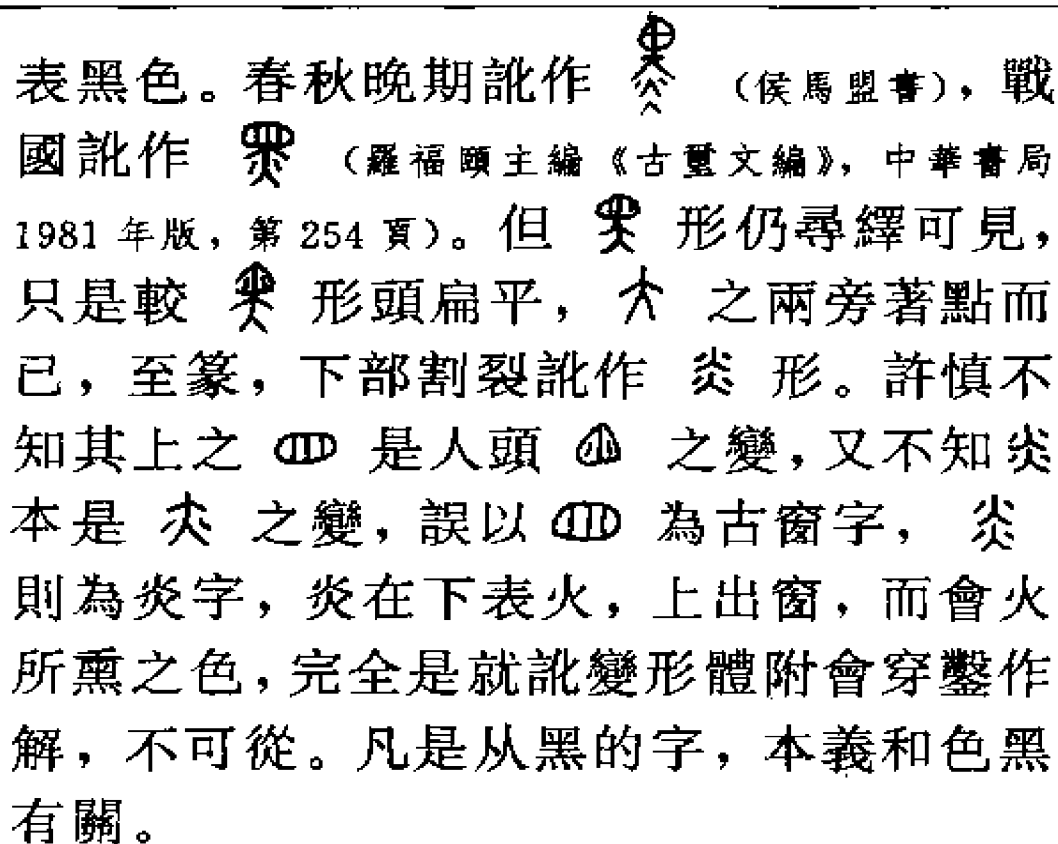 表黑色。春秋晚期訛作 （侯馬盟書），戰
國訛作 （羅福頤主編《古璽文編》，中華書局
1981年版，第254頁）。但 形仍尋繹可見，
只是較 形頭扁平， 之兩旁著點而
已，至篆，下部割裂訛作 形。許慎不
知其上之 是人頭 之變，又不知炎
本是 之變，誤以 為古窗字，炎
則為炎字，炎在下表火，上出窗，而會火
所熏之色，完全是就訛變形體附會穿鑿作
解，不可從。凡是从黑的字，本義和色黑
有關。